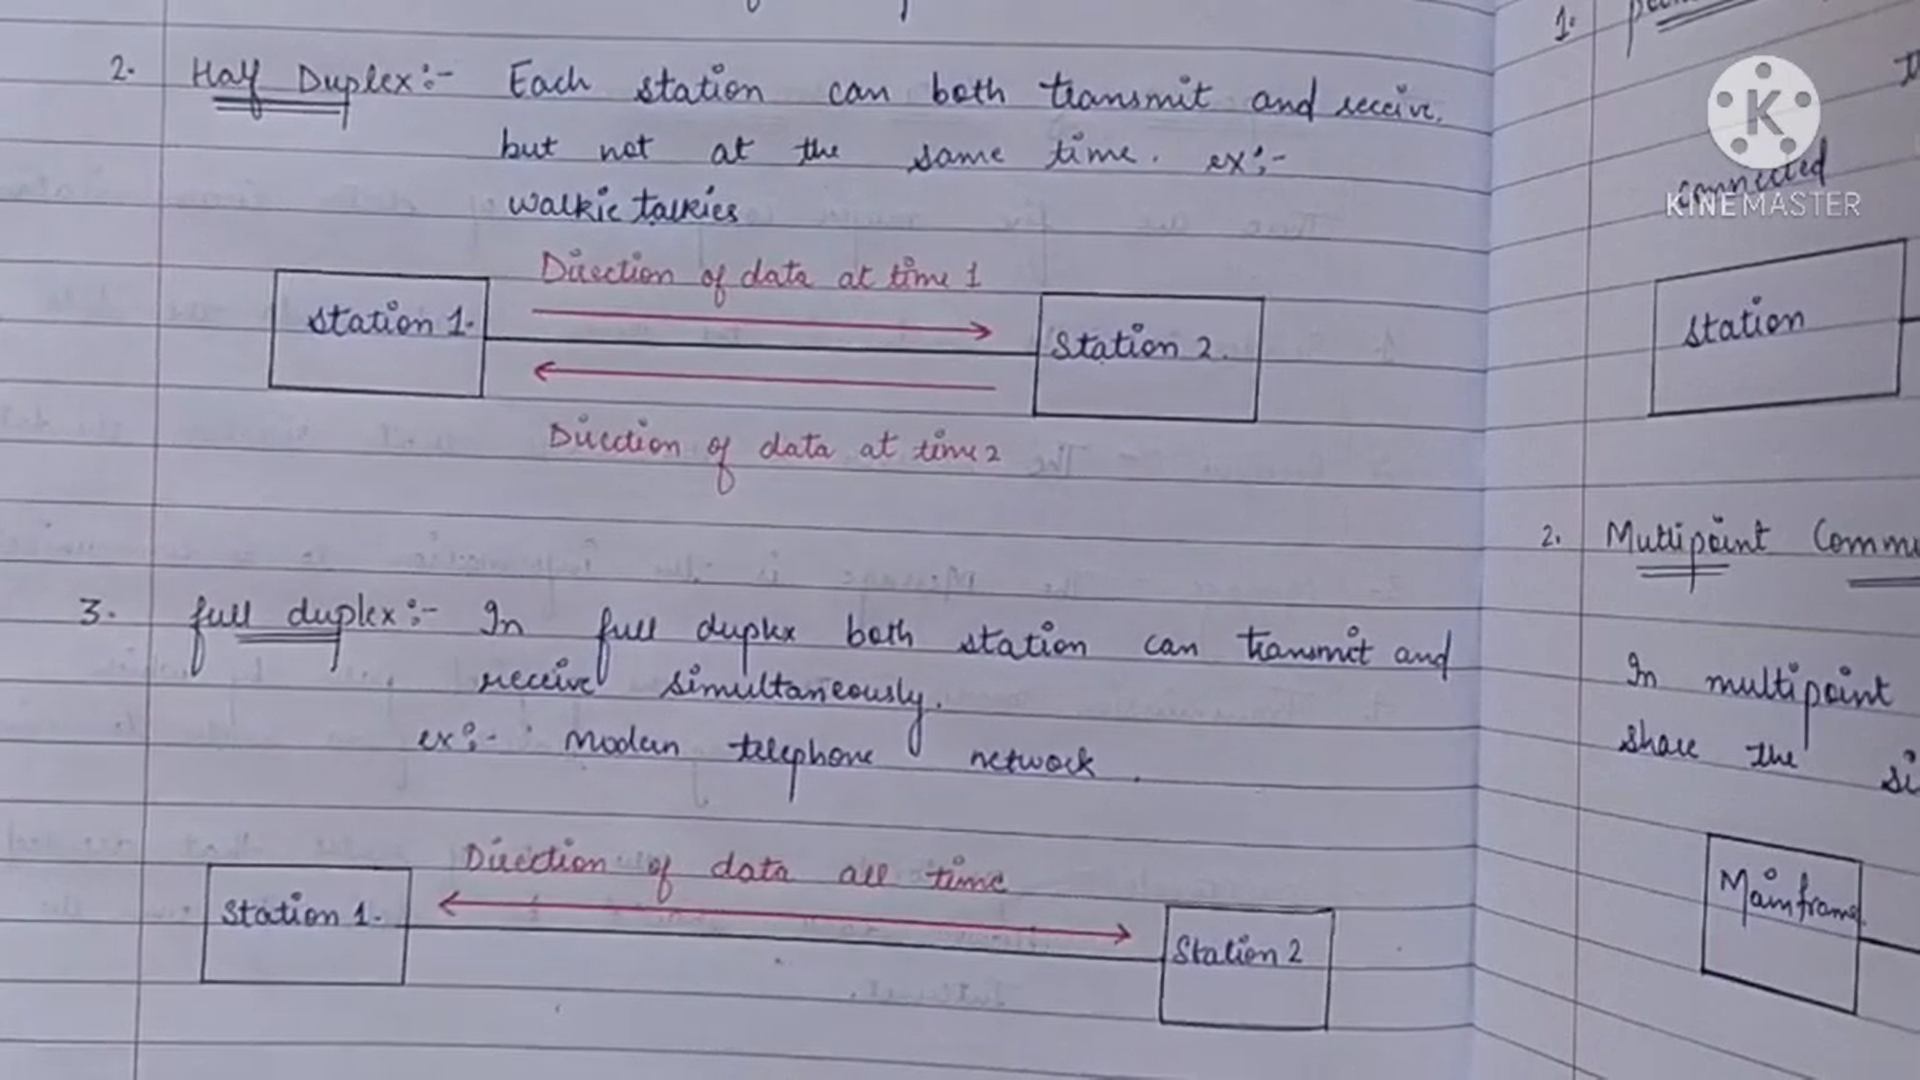 2. Half Duplex:- Each station can both transmit and receive.
but not at the same time. ex:-
walkie talkies
Direction of data at time 1
Station 1.
Station 2.
Direction of data at time 2
3. full duplex:- In full duplex both station can transmit and
receive simultaneously.
ex:- Modern telephone network.
Direction of data all time
Station 1.
Station 2
1.
connected
KINEMASTER
station
2. Multipoint Commu
In multipoint
share the si
Mainframe